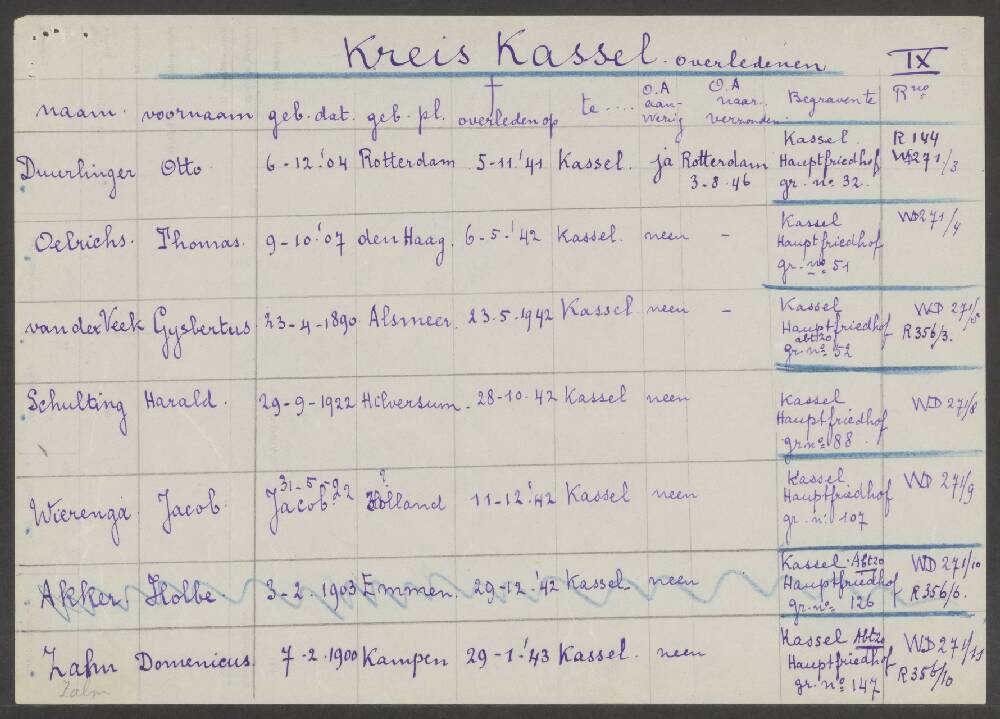 Kreis Kassel. overledenen IX
naam. voornaam geb. dat. geb. pl. † overleden op te .... O.A aan- wezig O.A naar verzonden Begraven te R no
Duurlinger Otto 6-12-'04 Rotterdam 5-11-'41 Kassel. ja Rotterdam 3-8-46 Kassel. Hauptfriedhof gr. no. 32. R 144 WD 271/3
Oelrichs. Thomas. 9-10-'07 den Haag. 6-5-'42 Kassel. neen - Kassel Hauptfriedhof gr. no 51 WD 271/4
van der Veek Gysbertus 23-4-1890 Alsmeer. 23.5.1942 Kassel neen - Kassel Hauptfriedhof abt 20 gr. no 52 WD 271/5 R356/3.
Schulting Harald. 29-9-1922 Hilversum. 28-10-42 Kassel neen Kassel Hauptfriedhof gr. no 88. WD 271/8
Wierenga Jacob. 31-5-22 Jacob. ? Holland 11-12-'42 Kassel neen Kassel. Hauptfriedhof gr. no 107 WD 271/9
Akker Holbe 3-2-1903 Emmen. 29-12-'42 Kassel neen Kassel. Abt 20 Hauptfriedhof gr. no. 126 WD 271/10 R356/6.
Zahn Domenicus. 7-2-1900 Kampen 29-1-'43 Kassel. neen Kassel Abt 20 Hauptfriedhof gr. no 147 WD 271/11 R356/10
Zalm